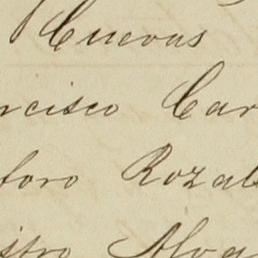 Cuevas
ncisco Car
foro Rozal
istro Alva